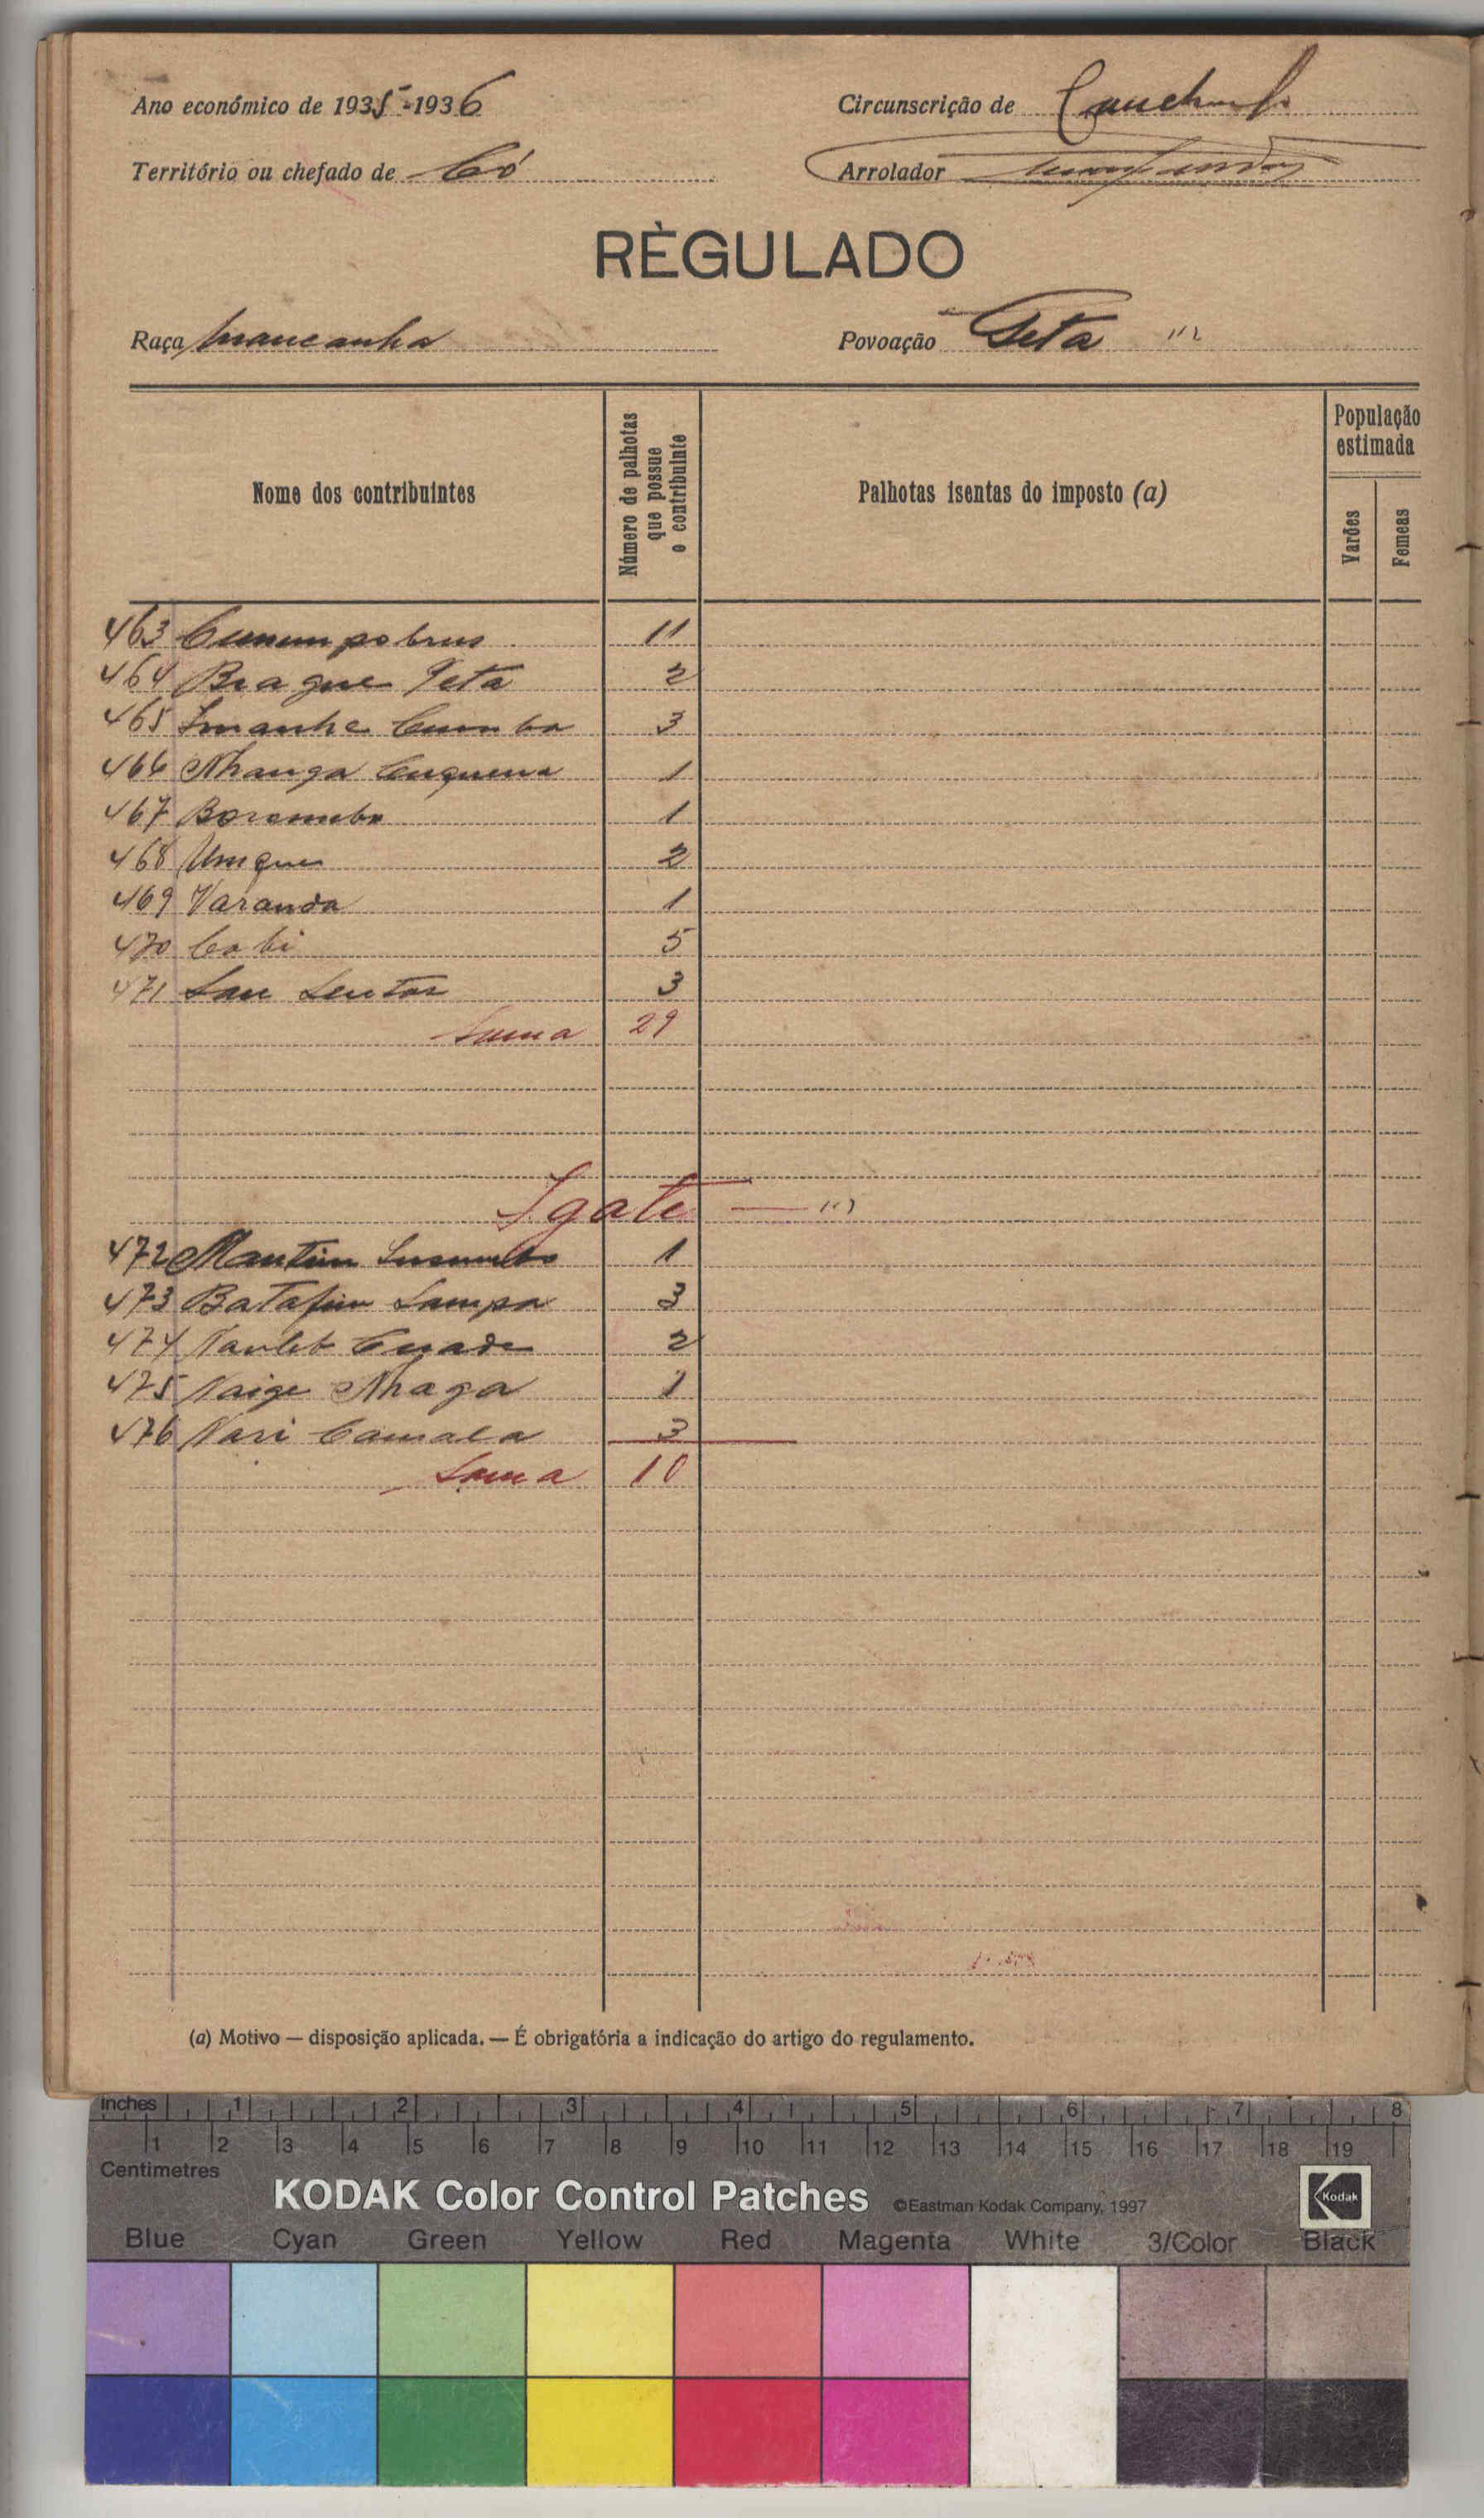 Ano económico de 1935-1936
Circunscrição de
Território ou chefado de Có
Arrolador
RÈGULADO
Raça Mancanha
Povoação Peta
Nome dos contribuintes
Número de palhotas
que possue
o contribuinte
Palhotas isentas do imposto (a)
População
estimada
Varões
Femeas
463 11
464 Brague Peta 2
465 3
466 Nhanga 1
467 1
468 Umque 2
469 Varanda 1
470 Cobi 5
471 3
Suma 29
Igate
472 Mantim 1
473 Batafim Sampa 3
474 2
475 Naige Nhaga 1
476 Nari Camala 3
Suma 10
(a) Motivo — disposição aplicada. — É obrigatória a indicação do artigo do regulamento.
Inches 1 2 3 4 5 6 7 8
1 2 3 4 5 6 7 8 9 10 11 12 13 14 15 16 17 18 19
Centimetres
KODAK Color Control Patches ©Eastman Kodak Company, 1997 Kodak
Blue Cyan Green Yellow Red Magenta White 3/Color Black